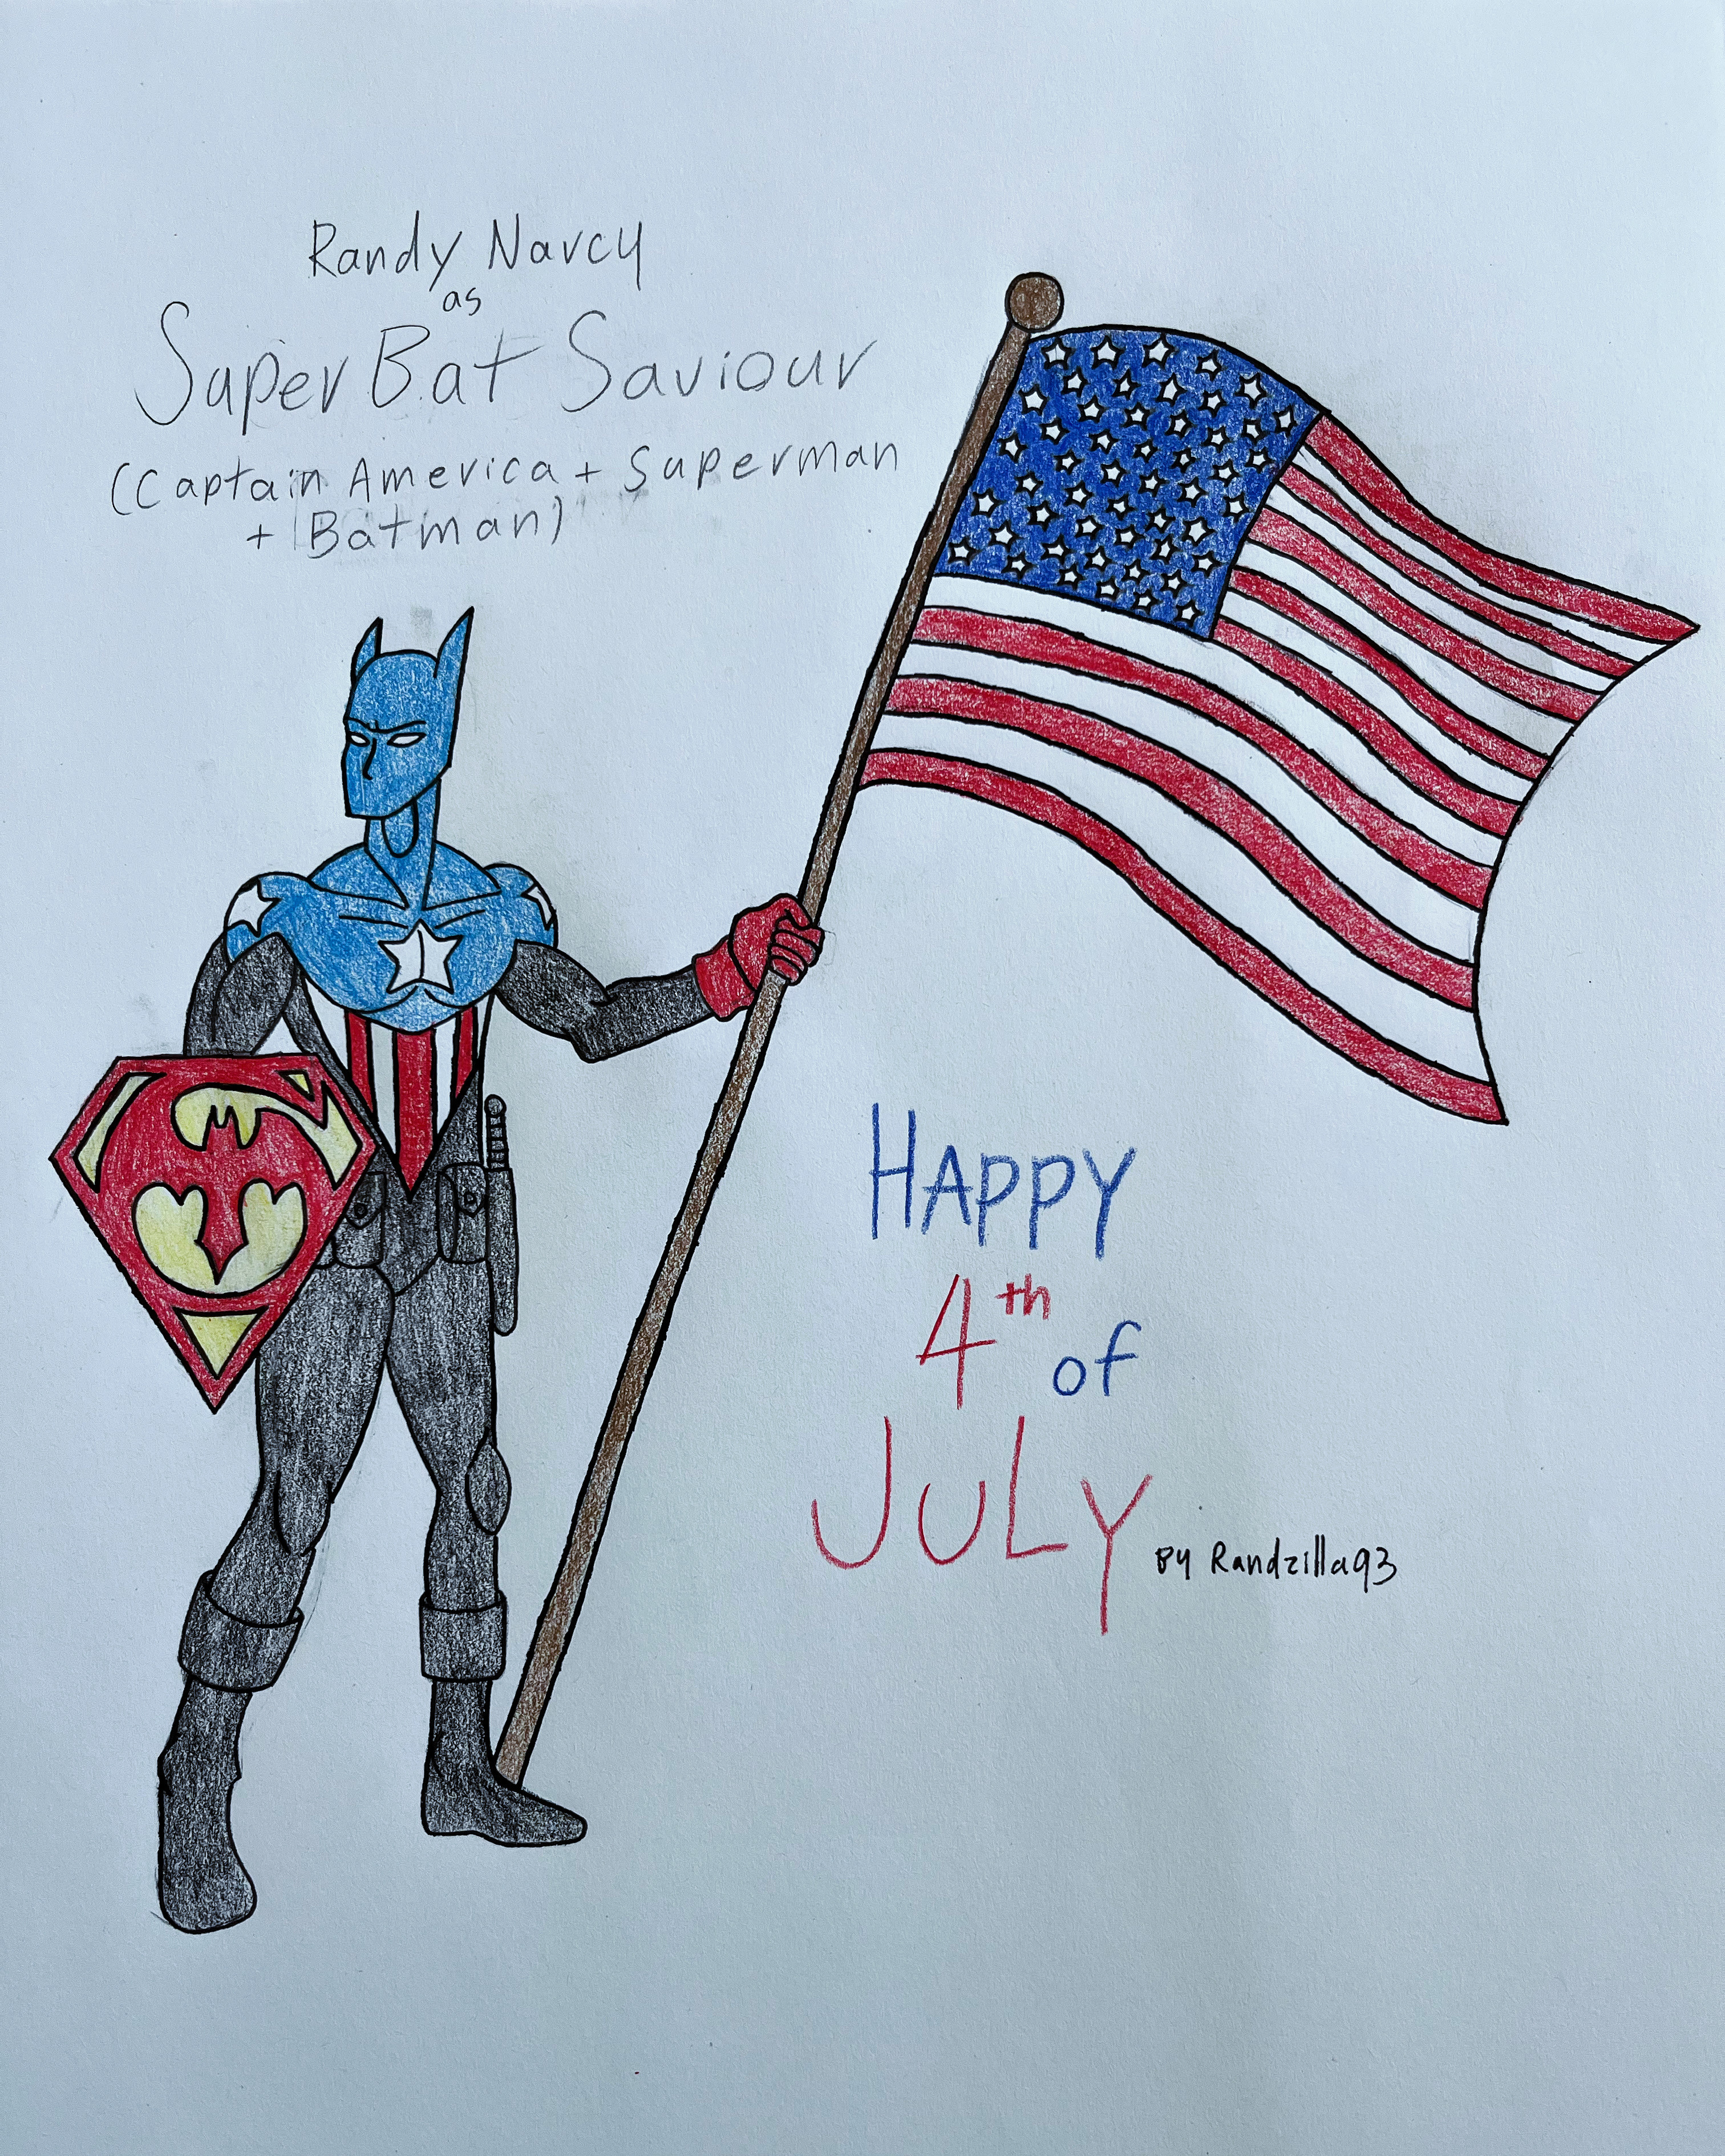 Randy Narcy
as
Super Bat Saviour
(Captain America + Superman
+ Batman)
HAPPY
4th of
JULY
BY Randzilla93